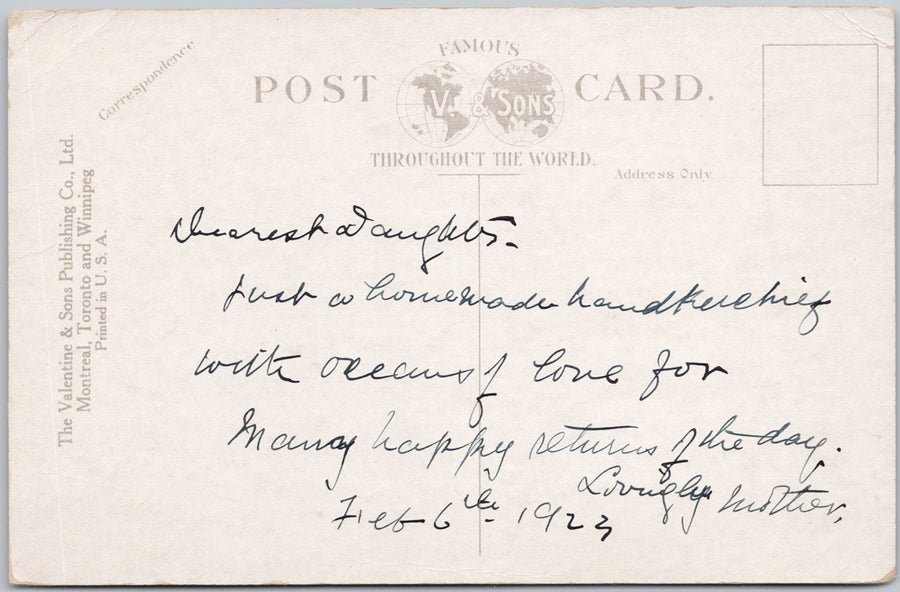 Correspondence
FAMOUS
POST V. & SONS CARD.
THROUGHOUT THE WORLD.
Address Only
The Valentine & Sons Publishing Co., Ltd.
Montreal, Toronto and Winnipeg
Printed in U. S. A.
Dearest Daughter.
Just a homemade handkerchief
with oceans of love for
Many happy returns of the day.
Lovingly Mother.
Feb 6th 1923